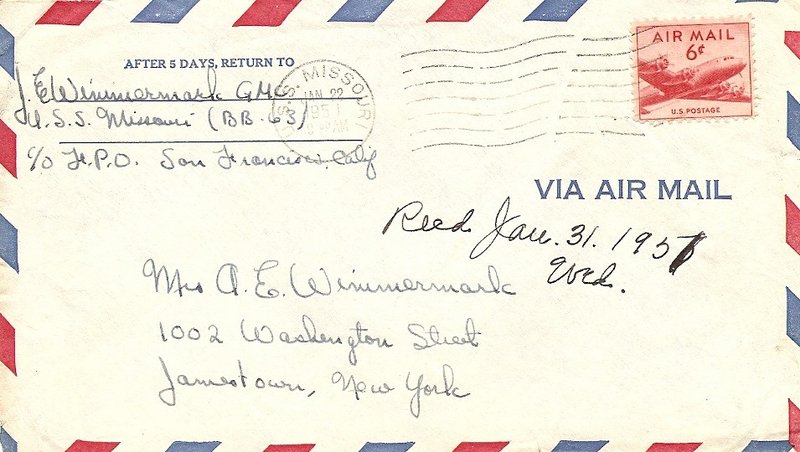 AFTER 5 DAYS, RETURN TO
J. E. Wimmermark GMC
U.S.S. Missouri (BB-63)
c/o F.P.O. San Francisco, Calif
U.S.S. MISSOURI
JAN 22
1951
AM
AIR MAIL
6¢
U.S. POSTAGE
VIA AIR MAIL
Recd. Jan. 31. 1951
Wed.
Mrs A. E. Wimmermark
1002 Washington Street
Jamestown, New York